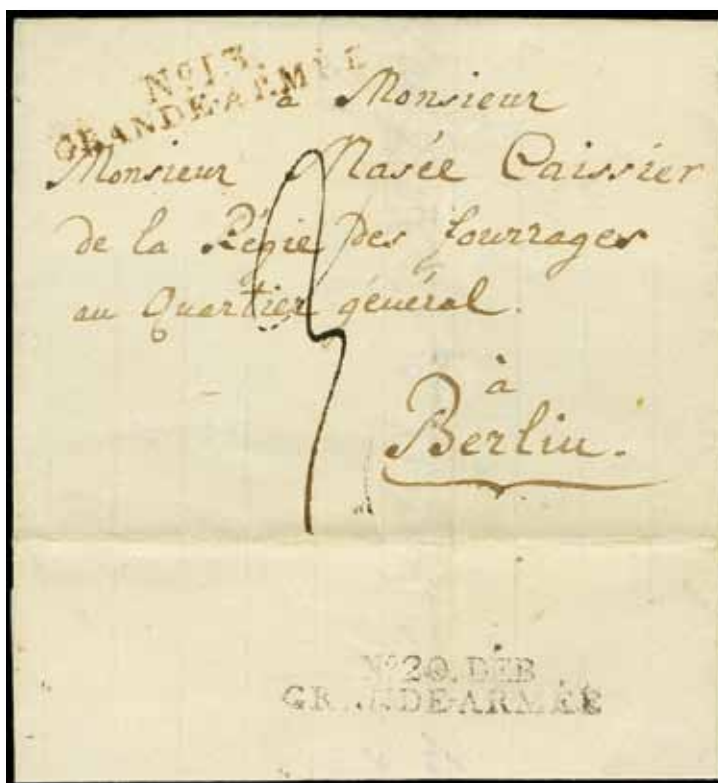 No 13.
GRANDE-ARMÉE
à Monsieur
Monsieur Masée Caissier
de la Régie des fourrages
au Quartier général.
à
Berlin.
No 20. DÉB
GRANDE-ARMÉE